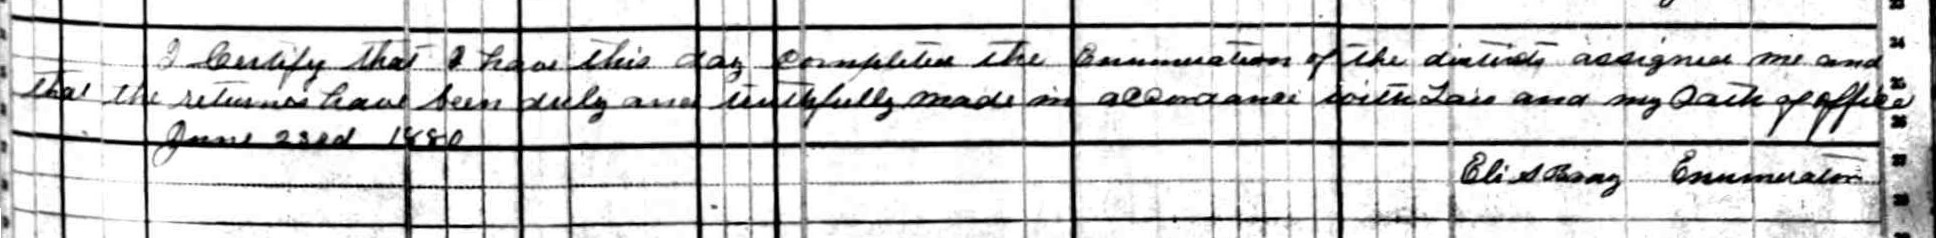 I Certify that I have this day completed the Enumeration of the district assigned me and
that the returns have been duly and truthfully made in accordance with Law and my Oath of office
June 23rd 1880
Eli S Enumerator